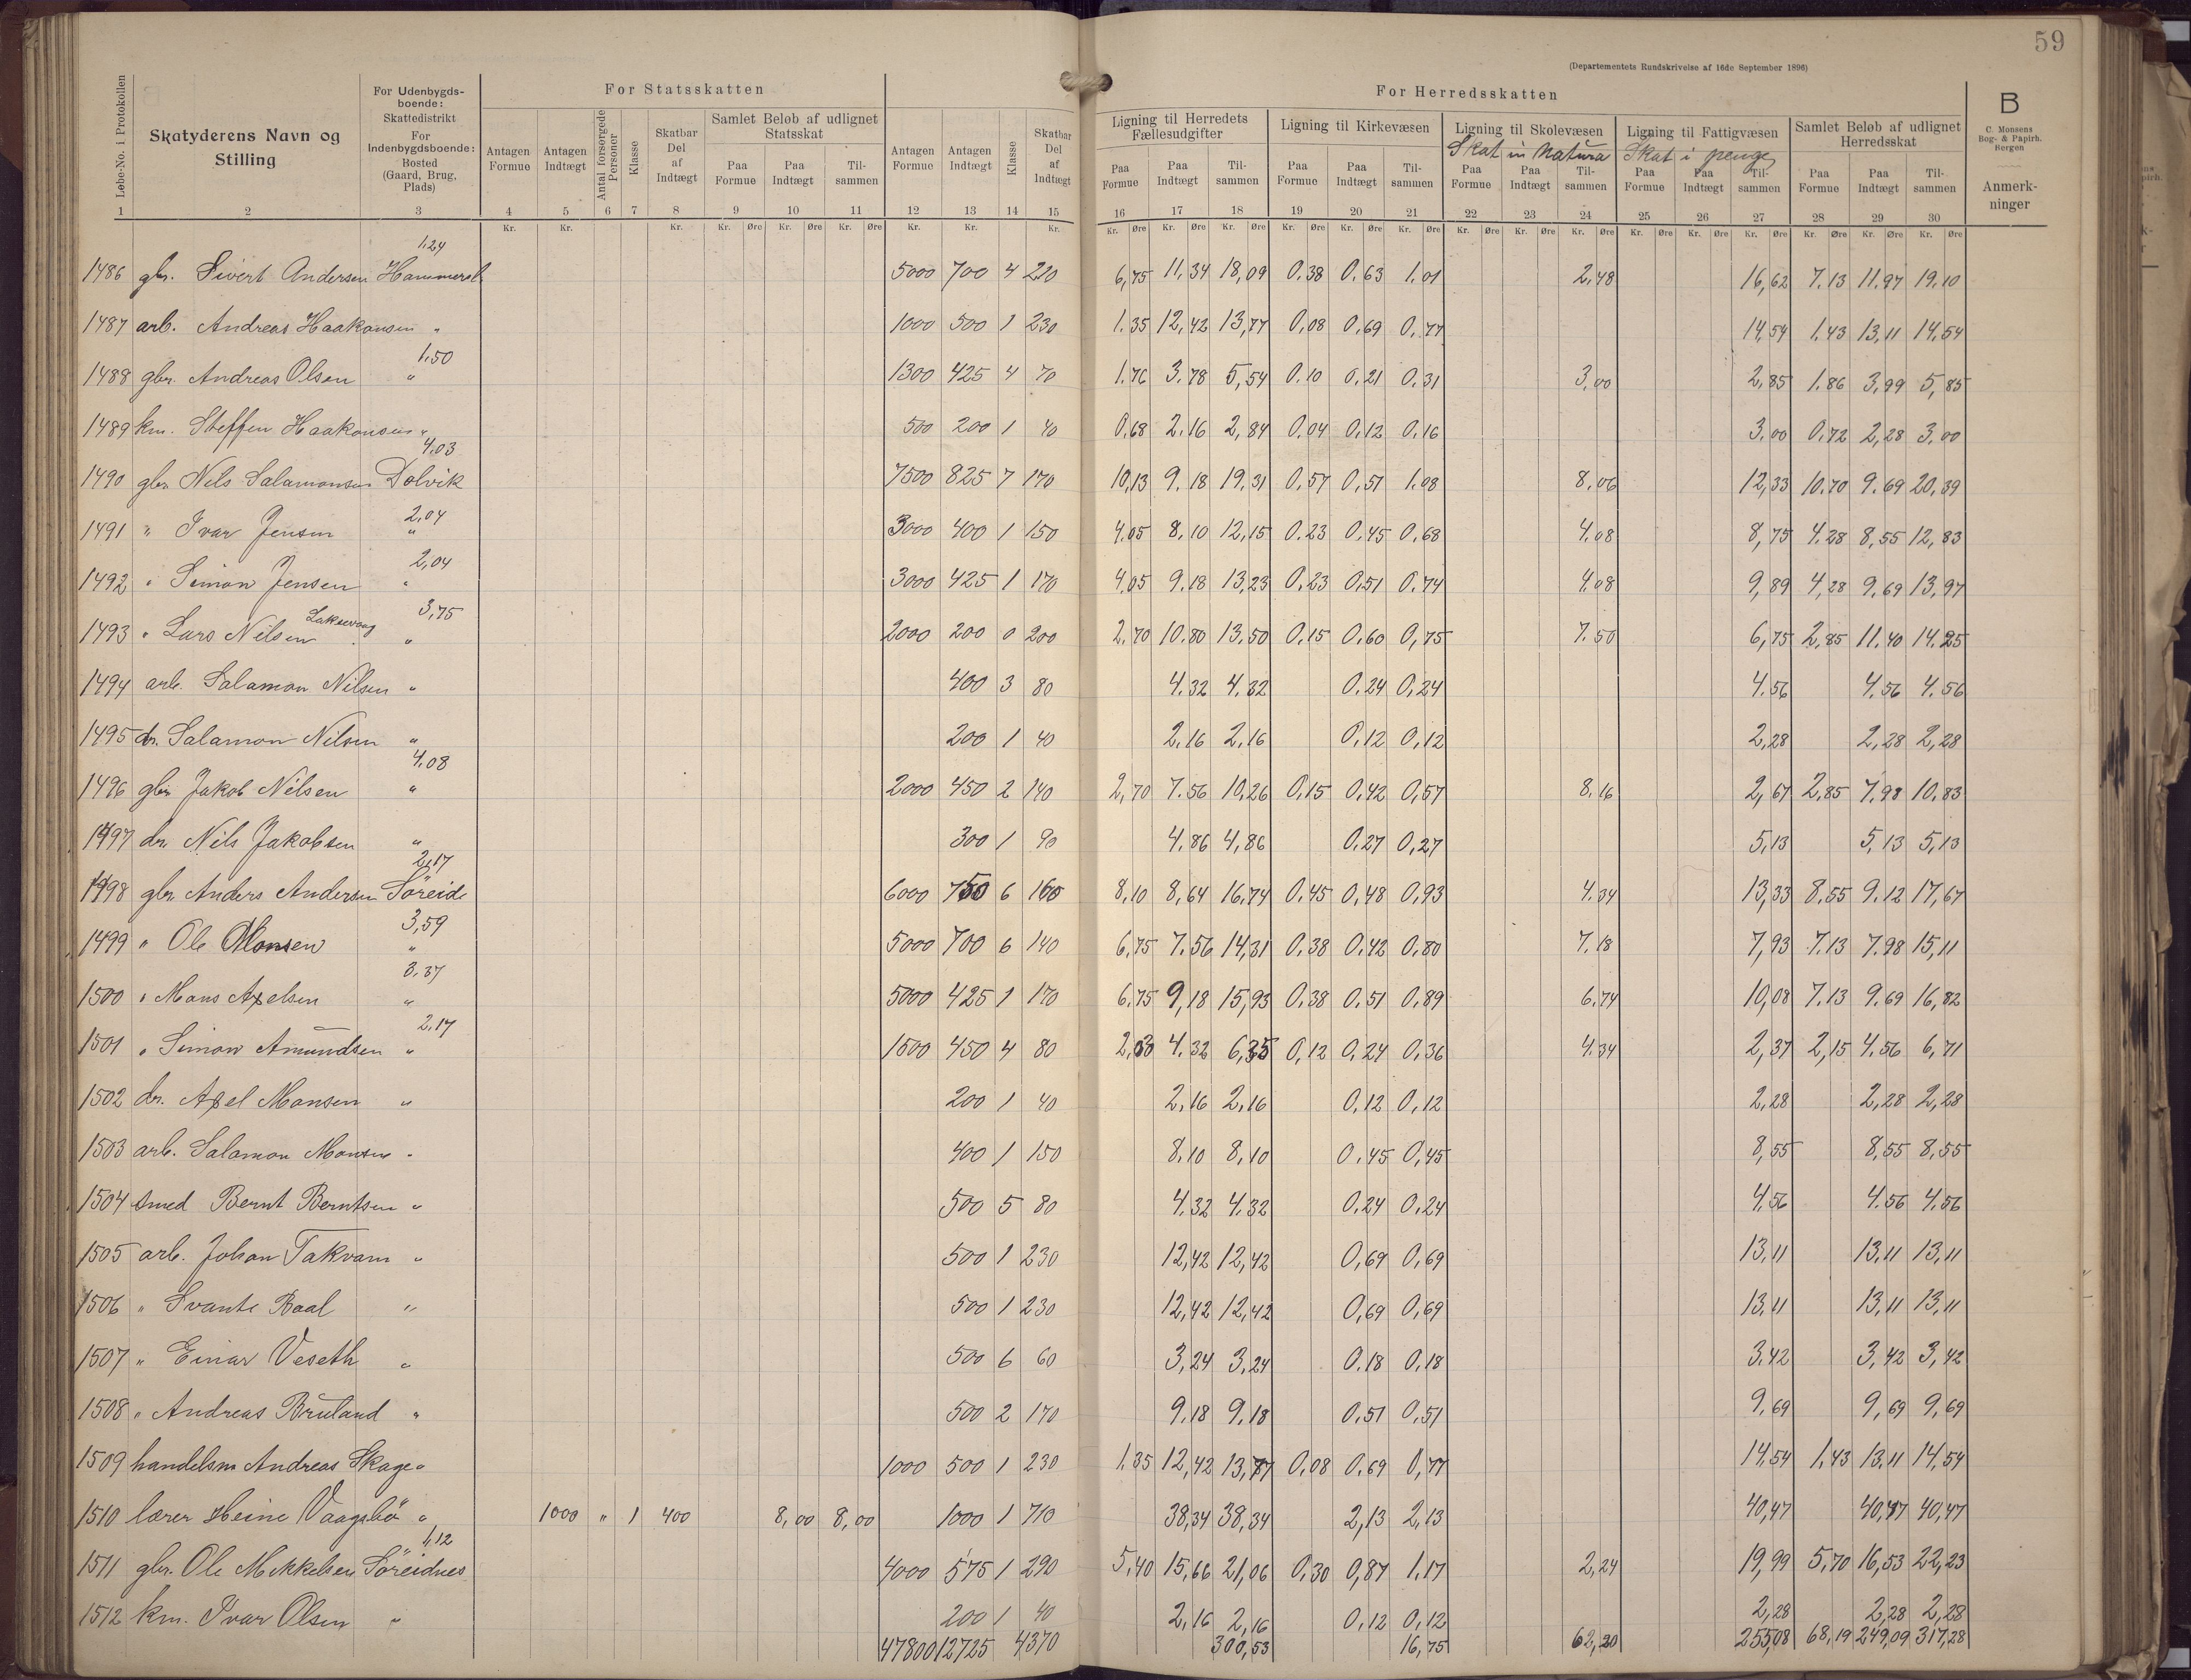 59
(Departementets Rundskrivelse af 16de September 1896)
Løbe-No. i Protokollen
Skatyderens Navn og Stilling
For Udenbygds-boende: Skattedistrikt
For Indenbygdsboende: Bosted (Gaard, Brug, Plads)
For Statsskatten
Antagen Formue
Antagen Indtægt
Antal forsørgede Personer
Klasse
Skatbar Del af Indtægt
Samlet Beløb af udlignet Statsskat
Paa Formue
Paa Indtægt
Til-sammen
For Herredsskatten
Antagen Formue
Antagen Indtægt
Klasse
Skatbar Del af Indtægt
Ligning til Herredets Fællesudgifter
Paa Formue Paa Indtægt Til-sammen
Ligning til Kirkevæsen
Paa Formue Paa Indtægt Til-sammen
Ligning til Skolevæsen
Skat in natura
Paa Formue Paa Indtægt Til-sammen
Ligning til Fattigvæsen
Skat i penge
Paa Formue Paa Indtægt Til-sammen
Samlet Beløb af udlignet Herredsskat
Paa Formue Paa Indtægt Til-sammen
B
C. Monsens Bog- & Papirh. Bergen
Anmerk-ninger
1 2 3 4 5 6 7 8 9 10 11 12 13 14 15 16 17 18 19 20 21 22 23 24 25 26 27 28 29 30
Kr. Kr. Kr. Kr. Øre Kr. Øre Kr. Øre Kr. Kr. Kr. Kr. Øre Kr. Øre Kr. Øre Kr. Øre Kr. Øre Kr. Øre Kr. Øre Kr. Øre Kr. Øre Kr. Øre Kr. Øre Kr. Øre Kr. Øre Kr. Øre Kr. Øre
1,24
1486 gbr. Sivert Andersen 5000 700 4 220 6,75 11,34 18,09 0,38 0,63 1,01 2,48 16,62 7,13 11,97 19,10
1487 arb. Andreas Haakonsen " 1000 500 1 230 1,35 12,42 13,77 0,08 0,69 0,77 14,54 1,43 13,11 14,54
1,50
1488 gbr. Andreas Olsen " 1300 425 4 70 1,76 3,78 5,54 0,10 0,21 0,31 3,00 2,85 1,86 3,99 5,85
1489 km. Steffen Haakonsen " 500 200 1 40 0,68 2,16 2,84 0,04 0,12 0,16 3,00 0,72 2,28 3,00
4,03
1490 gbr. Nils Salamonsen Dolvik 7500 825 7 170 10,13 9,18 19,31 0,57 0,51 1,08 8,06 12,33 10,70 9,69 20,39
2,04
1491 " Ivar Jensen " 3000 400 1 150 4,05 8,10 12,15 0,23 0,45 0,68 4,08 8,75 4,28 8,55 12,83
2,04
1492 " Simon Jensen " 3000 425 1 170 4,05 9,18 13,23 0,23 0,51 0,74 4,08 9,89 4,28 9,69 13,97
3,75
1493 " Lars Nilsen Laksevaag " 2000 200 0 200 2,70 10,80 13,50 0,15 0,60 0,75 7,50 6,75 2,85 11,40 14,25
1494 arb. Salamon Nilsen " 400 3 80 4,32 4,32 0,24 0,24 4,56 4,56 4,56
1495 dr. Salamon Nilsen " 200 1 40 2,16 2,16 0,12 0,12 2,28 2,28 2,28
4,08
1496 gbr. Jakob Nilsen " 2000 450 2 140 2,70 7,56 10,26 0,15 0,42 0,57 8,16 2,67 2,85 7,98 10,83
1497 dr. Nils Jakobsen " 300 1 90 4,86 4,86 0,27 0,27 5,13 5,13 5,13
2,17
1498 gbr. Anders Andersen Söreide 6000 750 6 160 8,10 8,64 16,74 0,45 0,48 0,93 4,34 13,33 8,55 9,12 17,67
3,59
1499 " Ole Monsen " 5000 700 6 140 6,75 7,56 14,31 0,38 0,42 0,80 7,18 7,93 7,13 7,98 15,11
3,37
1500 " Mons Axelsen " 5000 425 1 170 6,75 9,18 15,93 0,38 0,51 0,89 6,74 10,08 7,13 9,69 16,82
2,17
1501 " Simon Amundsen " 1500 450 4 80 2,03 4,32 6,35 0,12 0,24 0,36 4,34 2,37 2,15 4,56 6,71
1502 dr. Axel Monsen " 200 1 40 2,16 2,16 0,12 0,12 2,28 2,28 2,28
1503 arb. Salamon Monsen " 400 1 150 8,10 8,10 0,45 0,45 8,55 8,55 8,55
1504 smed Bernt Berntsen " 500 5 80 4,32 4,32 0,24 0,24 4,56 4,56 4,56
1505 arb. Johan Takvam " 500 1 230 12,42 12,42 0,69 0,69 13,11 13,11 13,11
1506 " Svante Raal " 500 1 230 12,42 12,42 0,69 0,69 13,11 13,11 13,11
1507 " Einar Veseth " 500 6 60 3,24 3,24 0,18 0,18 3,42 3,42 3,42
1508 " Andreas Bruland " 500 2 170 9,18 9,18 0,51 0,51 9,69 9,69 9,69
1509 handelsm Andreas Skage " 1000 500 1 230 1,35 12,42 13,77 0,08 0,69 0,77 14,54 1,43 13,11 14,54
1510 lærer Heine Vaagsbö " 1000 " 1 400 8,00 8,00 1000 1 710 38,34 38,34 2,13 2,13 40,47 40,47 40,47
1,12
1511 gbr. Ole Mikkelsen Söreidnes 4000 575 1 290 5,40 15,66 21,06 0,30 0,87 1,17 2,24 19,99 5,70 16,53 22,23
1512 km. Ivar Olsen " 200 1 40 2,16 2,16 0,12 0,12 2,28 2,28 2,28
47800 12725 4370 300,53 16,75 62,20 255,08 68,19 249,09 317,28